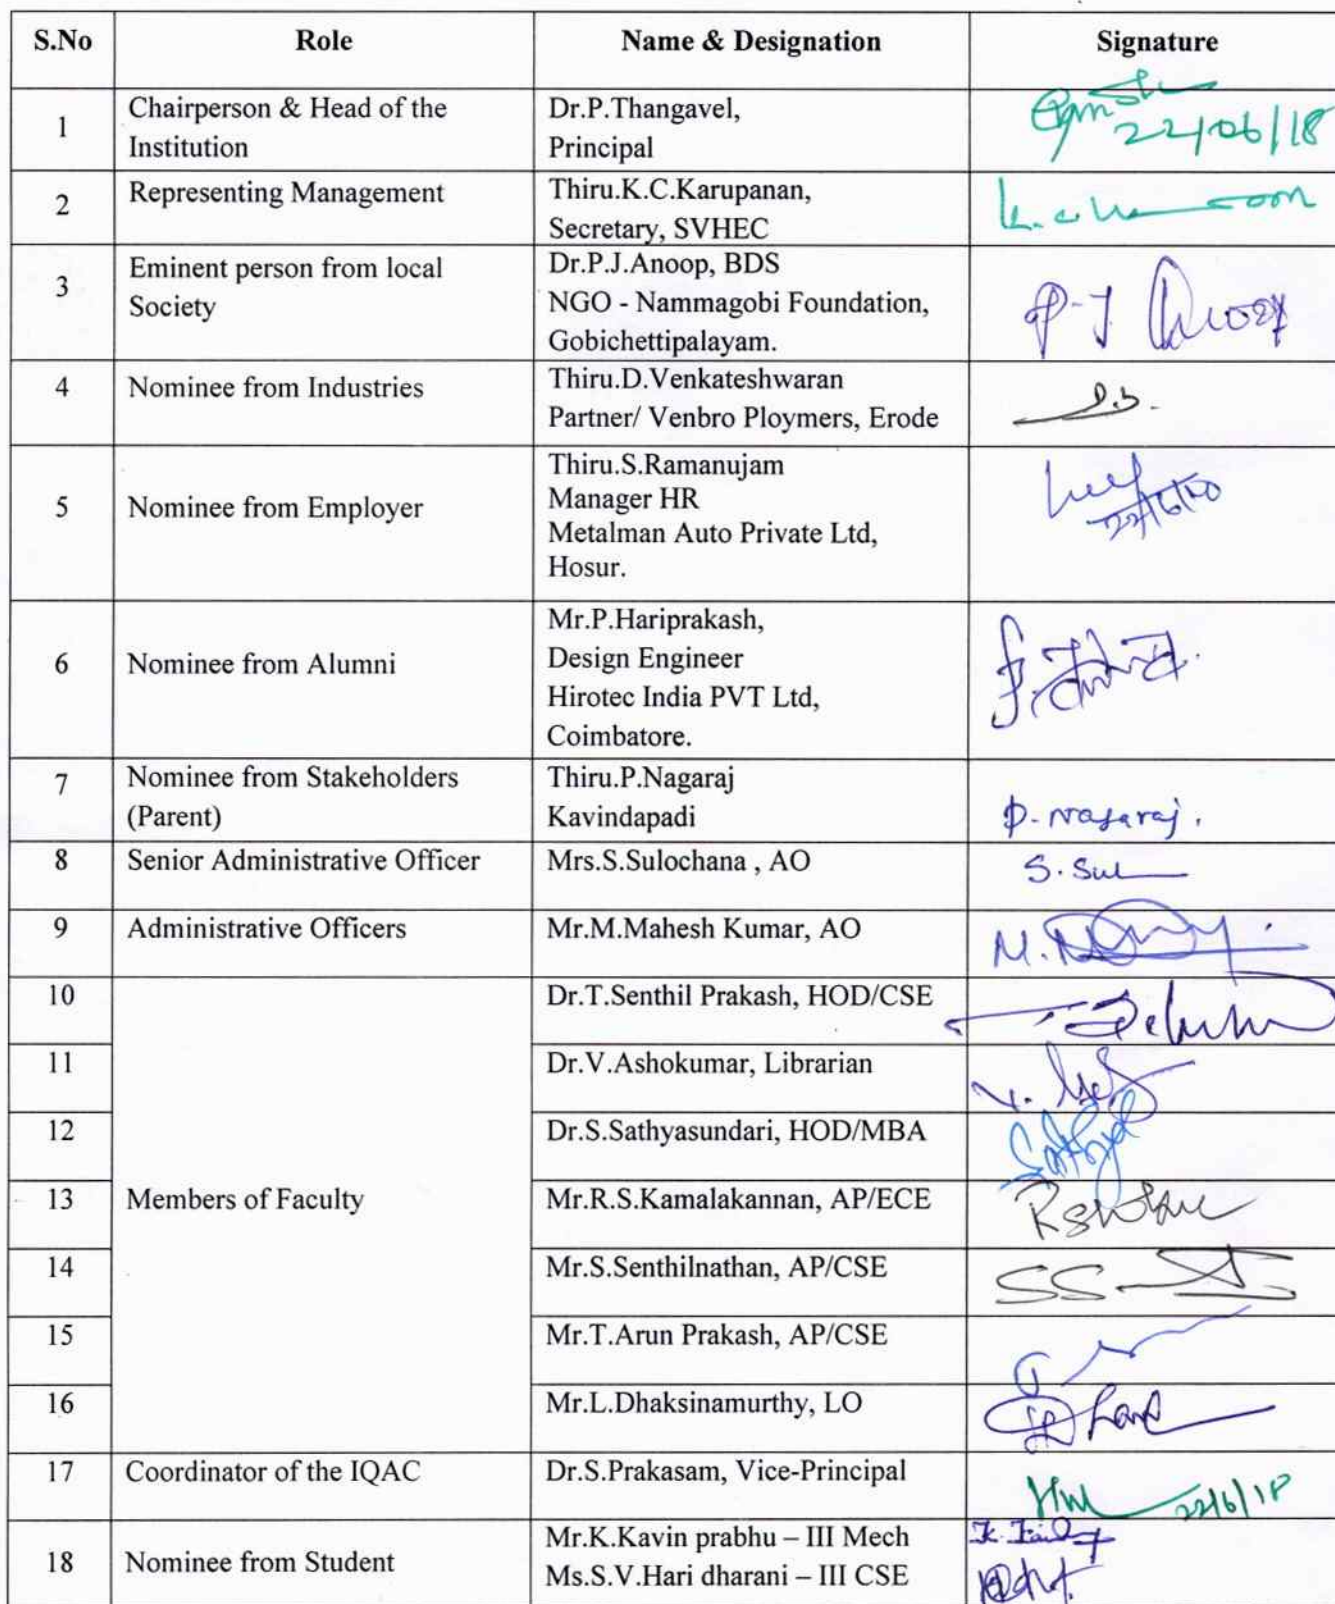 S.No Role Name & Designation Signature
1 Chairperson & Head of the Institution Dr.P.Thangavel, Principal 22/06/18
2 Representing Management Thiru.K.C.Karupanan, Secretary, SVHEC
3 Eminent person from local Society Dr.P.J.Anoop, BDS NGO - Nammagobi Foundation, Gobichettipalayam. P-J Anoop
4 Nominee from Industries Thiru.D.Venkateshwaran Partner/ Venbro Ploymers, Erode
5 Nominee from Employer Thiru.S.Ramanujam Manager HR Metalman Auto Private Ltd, Hosur.
6 Nominee from Alumni Mr.P.Hariprakash, Design Engineer Hirotec India PVT Ltd, Coimbatore.
7 Nominee from Stakeholders (Parent) Thiru.P.Nagaraj Kavindapadi P. Nagaraj.
8 Senior Administrative Officer Mrs.S.Sulochana , AO S. Sul
9 Administrative Officers Mr.M.Mahesh Kumar, AO
10 Dr.T.Senthil Prakash, HOD/CSE
11 Dr.V.Ashokumar, Librarian
12 Dr.S.Sathyasundari, HOD/MBA
13 Members of Faculty Mr.R.S.Kamalakannan, AP/ECE
14 Mr.S.Senthilnathan, AP/CSE
15 Mr.T.Arun Prakash, AP/CSE
16 Mr.L.Dhaksinamurthy, LO
17 Coordinator of the IQAC Dr.S.Prakasam, Vice-Principal 22/6/18
18 Nominee from Student Mr.K.Kavin prabhu – III Mech Ms.S.V.Hari dharani – III CSE